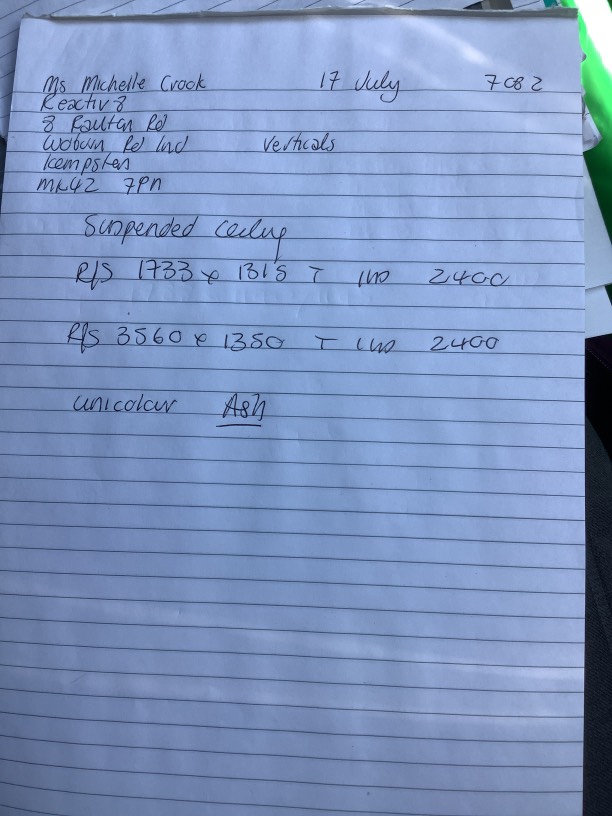 Ms Michelle Crook 17 July 7082
Reactiv 8
8 Railton Rd
Woburn Rd Ind Verticals
Kempston
MK42 7PN
Suspended Ceiling
R/S 1733 x 1315 T 2400
R/S 3560 x 1350 T 2400
unicolour Ash